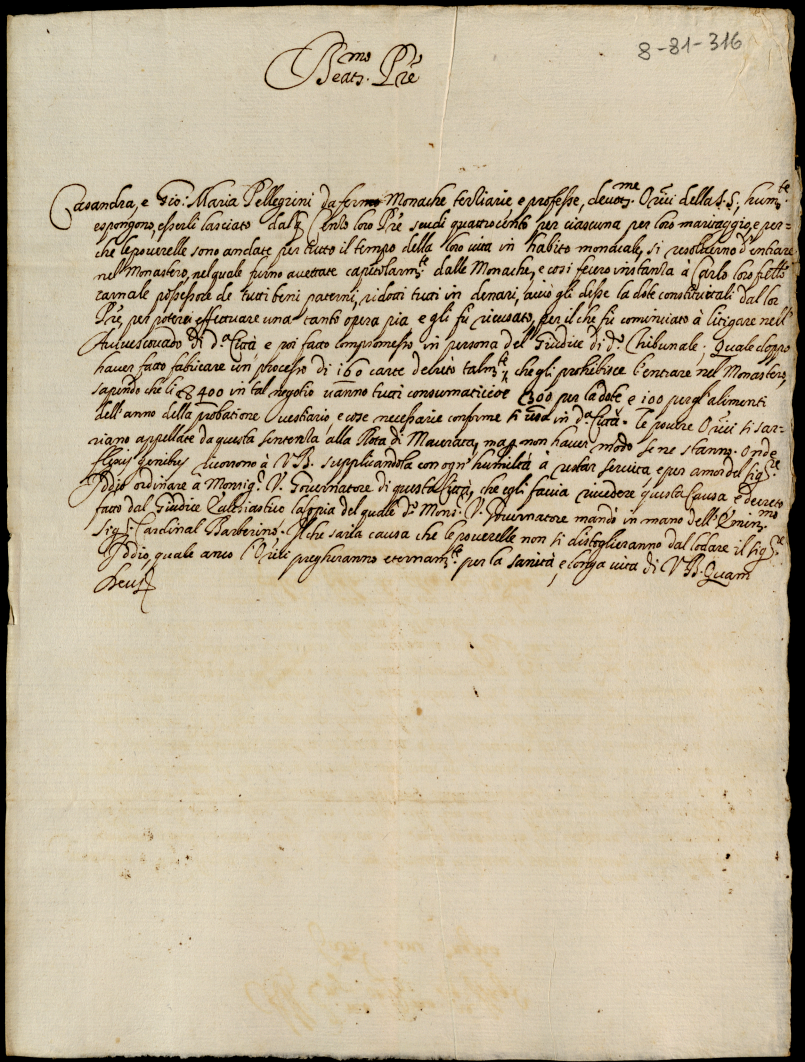 8-81-316
Beat.mo Prê
Casandra, e Gio: Maria Pellegrini da fermo Monache tertiarie e professe, devot.me Oriti della S.S., hum.te
espongono, esserli lasciato dal loro Prê scudi quattrocento per ciascuna per loro maritaggio, e per-
che le poverelle sono andate per tutto il tempo della loro vita in habito monacale, si resolverno d'entrare
nel Monastero, nel quale furno accettate capitolarm.te dalle Monache, e così fecero instanza à Carlo loro frêllo
carnale possessore de tutti beni paterni, ridotti tutti in denari, acciò gli desse la dote constituitali dal lor
Prê, per poterei effettuare una tanto opera pia e egli fù ricusato, per il che fù cominciato à litigare nell'
Arcivescovado di d.a Città e poi fatto compromesso in persona del Giudice di d.o Tribunale. Quale doppo
haver fatto fabricare un processo di 160 carte decretò talm.te che gli prohibisce l'entrare nel Monastero,
sapendo che li 400 in tal negotio vanno tutti consumati cioè 300 per la dote e 100 per gl'alimenti
dell'anno della probatione vestiario, e cose necessarie conforme si usa in d.a Città. Le povere Oriti si sar-
riano appellate da questa sentenza, alla Rota di Macerata, ma non haver modo se ne stanno. Onde
flexis genibus ricorrono à V.B. supplicandola con ogn' humiltà à restar servita, e per amor del Sig.re
Iddio ordinare à Monsig.r V. Governatore di questa Città, che egli faccia rivedere questa Causa e decreto
fatto dal Giudice Eclesiastico la copia del quale d.o Mons.r V. Governatore mandò in mano dell'Emin.mo
Sig.r Cardinal Barberino. Il che sarla causa che le poverelle non si distoglieranno dal lodare il Sig.re
Iddio, quale anco l'Oriti pregheranno eternam.te per la sanità, e longa vita di V.B. Quam
Deus